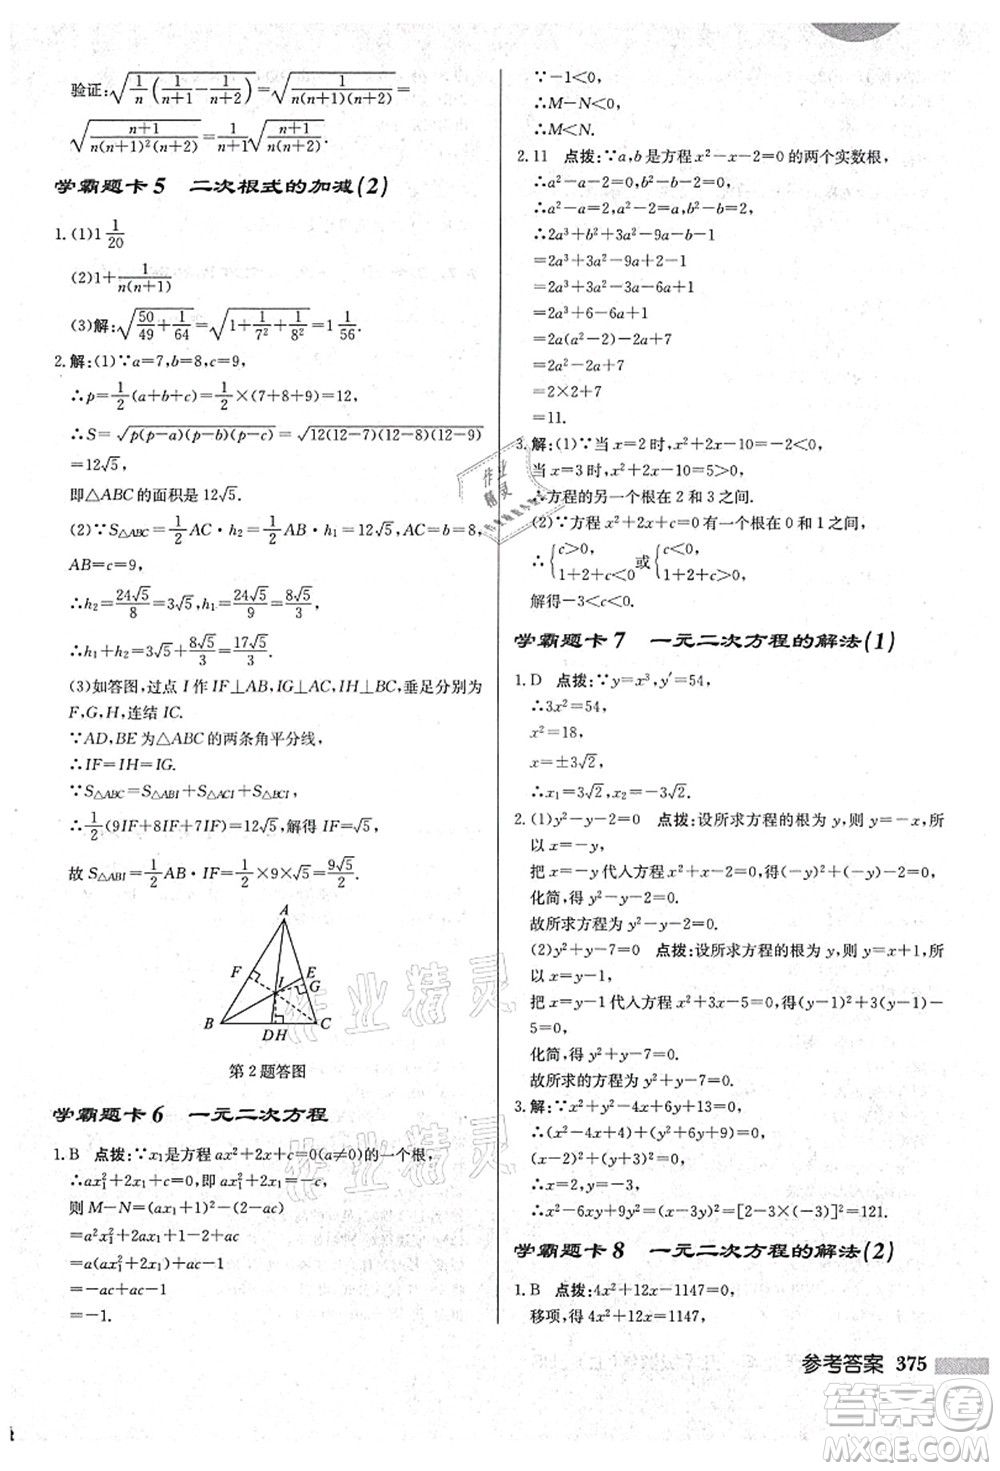 验证:√(1/n(1/(n+1)-1/(n+2)))=√(1/(n(n+1)(n+2)))=
√((n+1)/(n(n+1)²(n+2)))=1/(n+1)√((n+1)/(n(n+2))).
学霸题卡5 二次根式的加减(2)
1.(1)1 1/20
(2)1+1/(n(n+1))
(3)解:√(50/49+1/64)=√(1+1/7²+1/8²)=1 1/56.
2.解:(1)∵a=7,b=8,c=9,
∴p=1/2(a+b+c)=1/2×(7+8+9)=12,
∴S=√(p(p-a)(p-b)(p-c))=√(12(12-7)(12-8)(12-9))
=12√5,
即△ABC的面积是12√5.
(2)∵S△ABC=1/2AC·h₂=1/2AB·h₁=12√5,AC=b=8,
AB=c=9,
∴h₂=24√5/8=3√5,h₁=24√5/9=8√5/3,
∴h₁+h₂=3√5+8√5/3=17√5/3.
(3)如答图,过点I作IF⊥AB,IG⊥AC,IH⊥BC,垂足分别为
F,G,H,连结IC.
∵AD,BE为△ABC的两条角平分线,
∴IF=IH=IG.
∵S△ABC=S△ABI+S△ACI+S△BCI,
∴1/2(9IF+8IF+7IF)=12√5,解得IF=√5,
故S△ABI=1/2AB·IF=1/2×9×√5=9√5/2.
A
F
E
I
G
B
DH
C
第2题答图
学霸题卡6 一元二次方程
1.B 点拨:∵x₁是方程ax²+2x+c=0(a≠0)的一个根,
∴ax₁²+2x₁+c=0,即ax₁²+2x₁=-c,
则M-N=(ax₁+1)²-(2-ac)
=a²x₁²+2ax₁+1-2+ac
=a(ax₁²+2x₁)+ac-1
=-ac+ac-1
=-1.
∵-1<0,
∴M-N<0,
∴M<N.
2.11 点拨:∵a,b是方程x²-x-2=0的两个实数根,
∴a²-a-2=0,b²-b-2=0,
∴a²=a+2,a²-a=2,b²-b=2,
∴2a³+b²+3a²-9a-b-1
=2a³+b²-b+3a²-9a-1
=2a³+2+3(a+2)-9a-1
=2a³+2+3a+6-9a-1
=2a³-6a+7
=2a(a²-2)-a²+7
=2a²-2a+7
=2×2+7
=11.
3.解:(1)∵当x=2时,x²+2x-10=-2<0,
当x=3时,x²+2x-10=5>0,
∴方程的另一个根在2和3之间.
(2)∵方程x²+2x+c=0有一个根在0和1之间,
∴{c>0, 1+2+c<0 或 {c<0, 1+2+c>0,
解得-3<c<0.
学霸题卡7 一元二次方程的解法(1)
1.D 点拨:∵y=x³,y′=54,
∴3x²=54,
x²=18,
x=±3√2,
∴x₁=3√2,x₂=-3√2.
2.(1)y²-y-2=0 点拨:设所求方程的根为y,则y=-x,所
以x=-y,
把x=-y代入方程x²+x-2=0,得(-y)²+(-y)-2=0,
化简,得y²-y-2=0.
故所求方程为y²-y-2=0.
(2)y²+y-7=0 点拨:设所求方程的根为y,则y=x+1,所
以x=y-1,
把x=y-1代入方程x²+3x-5=0,得(y-1)²+3(y-1)-
5=0,
化简,得y²+y-7=0.
故所求方程为y²+y-7=0.
3.解:∵x²+y²-4x+6y+13=0,
∴(x-2)²+(y+3)²=0,
∴x-2=0,y+3=0,
∴x=2,y=-3,
∴x²-6xy+9y²=(x-3y)²=[2-3×(-3)]²=121.
学霸题卡8 一元二次方程的解法(2)
1.B 点拨:4x²+12x-1147=0,
移项,得4x²+12x=1147,
参考答案 375
作业精灵
作业精灵
作业精灵
答案圈
MXQE.COM